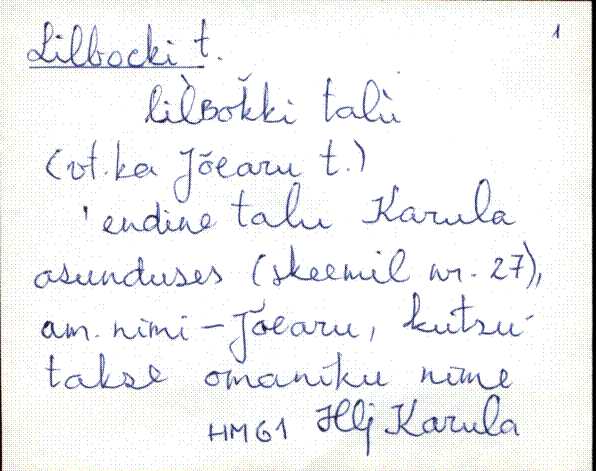 1
Lilbocki t.
lìlʙok̆ki talù
(vt. ka Jõearu t.)
'endine talu Karula
asunduses (skeemil nr. 27),
am. nimi - Jõearu, kutsu-
takse omaniku nime
HM61 Hlj Karula